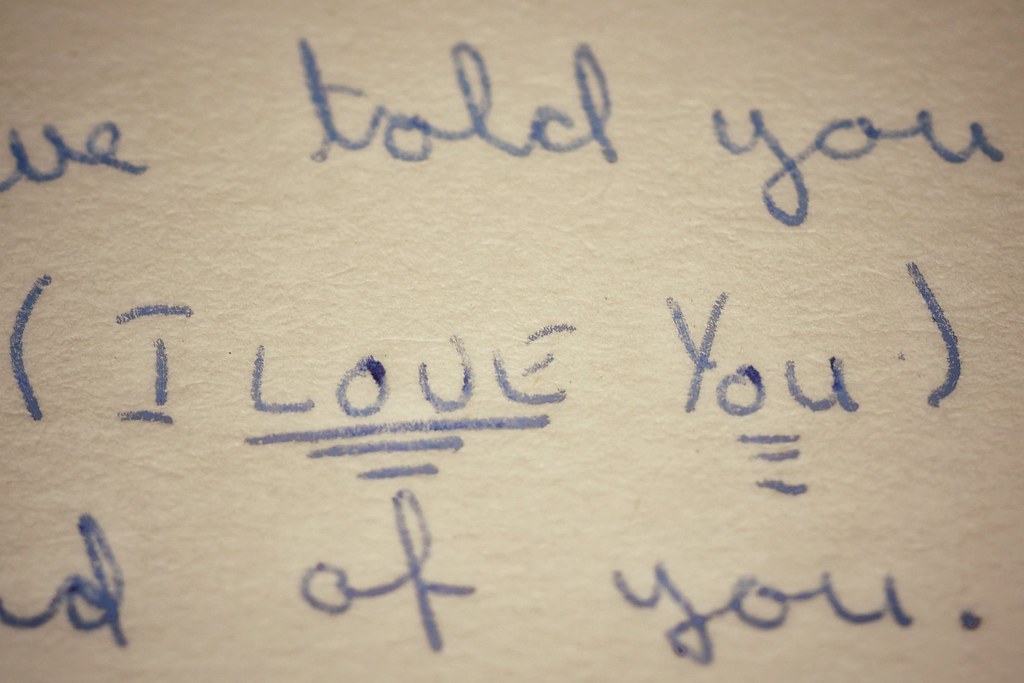 ve told you
(I LOVE YOU)
d of you.